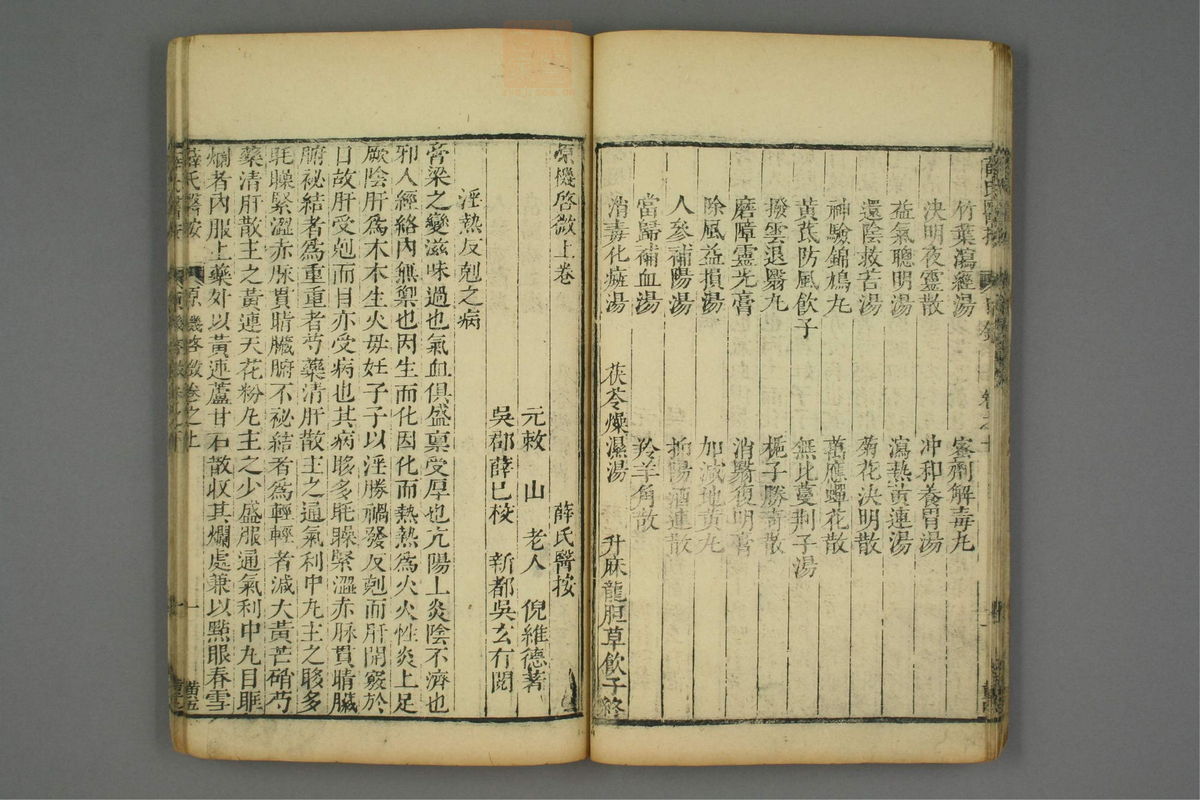 竹葉瀉經湯　蜜劑解毒丸
決明夜靈散　冲和養胃湯
益氣聰明湯　瀉熱黃連湯
還陰救苦湯　菊花決明散
神驗錦鳩丸　萬應蟬花散
黃芪防風飲子　無比蔓荆子湯
撥雲退翳丸　梔子勝奇散
磨障靈光膏　消翳復明膏
除風益損湯　加減地黃丸
人參補陽湯　抑陽酒連散
當歸補血湯　羚羊角散
消毒化癍湯　茯苓燥濕湯　升麻龍胆草飲子終
原機啓微上卷　薛氏醫按
元敕　山　老人　倪維德著
吳郡薛已校　新都吳玄有閱
淫熱反剋之病
膏梁之變滋味過也氣血俱盛稟受厚也亢陽上炎陰不濟也
邪人經絡內無禦也因生而化因化而熱熱爲火火性炎上足
厥陰肝爲木木生火母妊子子以淫勝禍發反剋而肝開竅於
目故肝受剋而目亦受病也其病眵多眊矂緊澀赤脉貫睛臟
腑祕結者爲重重者芍藥清肝散主之通氣利中丸主之眵多
眊矂緊澀赤脉貫睛臟腑不祕結者爲輕輕者減大黃芒硝芍
藥清肝散主之黃連天花粉丸主之少盛服通氣利中丸目眶
爛者內服上藥外以黃連蘆甘石散收其爛處兼以點眼春雪
薛氏醫按　原機啓微卷之上　一